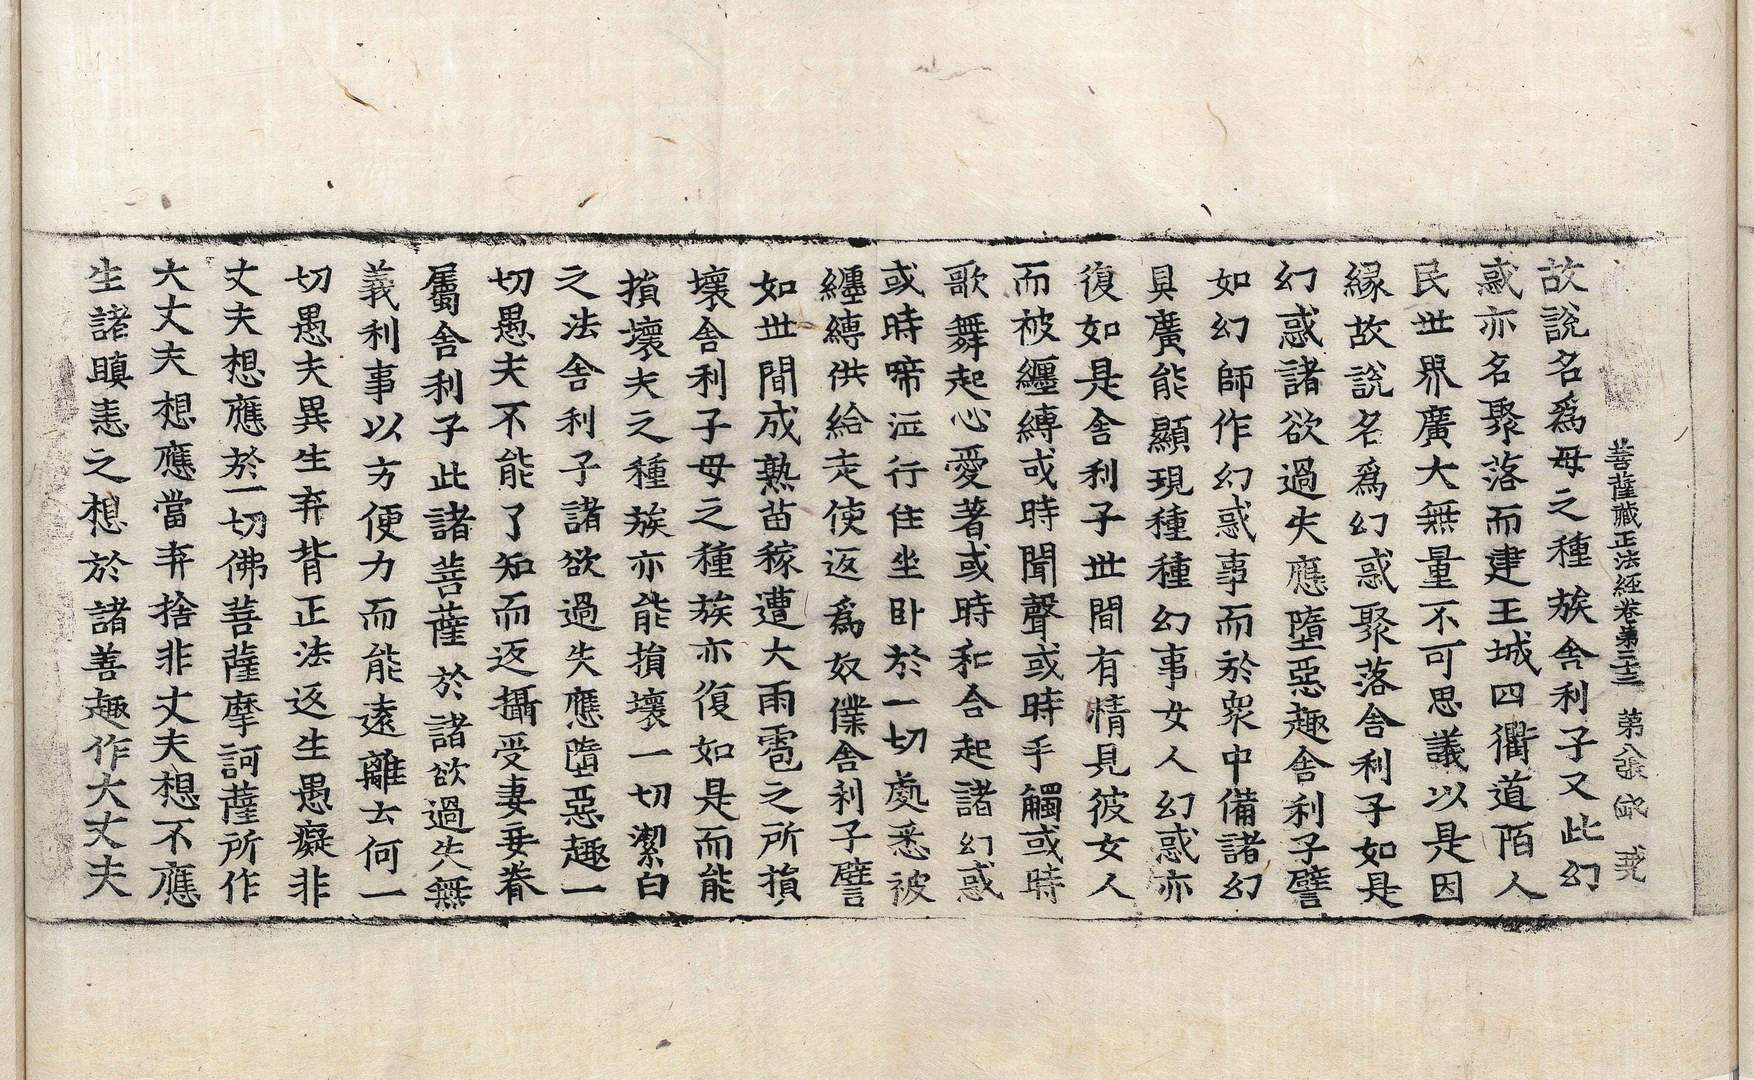 菩薩藏正法經卷第三十三 第八張 戎
故說名爲母之種族舍利子又此幻
惑亦名聚落而建王城四衢道陌人
民世界廣大無量不可思議以是因
緣故說名爲幻惑聚落舍利子如是
幻惑諸欲過失應墮惡趣舍利子譬
如幻師作幻惑事而於衆中備諸幻
具廣能顯現種種幻事女人幻惑亦
復如是舍利子世間有情見彼女人
而被纏縛或時聞聲或時手觸或時
歌舞起心愛著或時和合起諸幻惑
或時啼泣行住坐臥於一切處悉被
纏縛供給走使返爲奴僕舍利子譬
如世間成熟苗稼遭大雨雹之所損
壞舍利子母之種族亦復如是而能
損壞夫之種族亦能損壞一切潔白
之法舍利子諸欲過失應墮惡趣一
切愚夫不能了知而返攝受妻妾眷
屬舍利子此諸菩薩於諸欲過失無
義利事以方便力而能遠離云何一
切愚夫異生弃背正法返生愚癡非
丈夫想應於一切佛菩薩摩訶薩所作
大丈夫想應當弃捨非丈夫想不應
生諸瞋恚之想於諸善趣作大丈夫